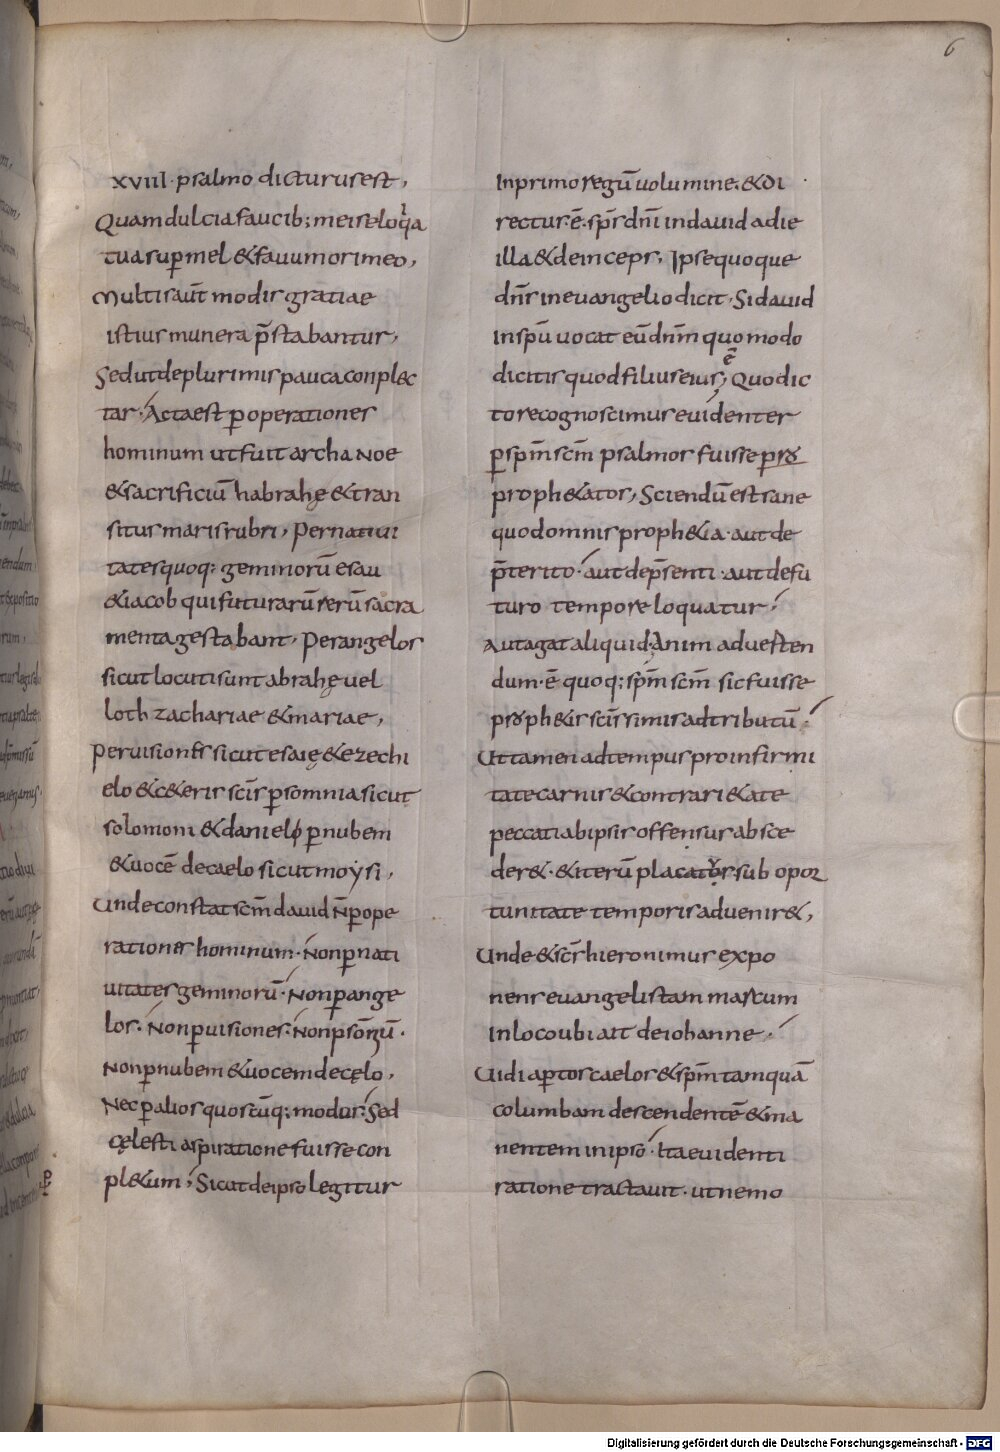 6
xviii· psalmo dicturus est,
Quam dulcia faucib; meis eloq̇a
tua sup mel &favum ori meo,
Multis aūt modis gratiae
istius munera p̄stabantur,
Sed ut de plurimis pauca conplec
tar· Acta est ꝑ operationes
hominum ut fuit archa Noe
&sacrificiū habrahę &tran
situs maris rubri, Per nativi
tates quoq: geminorū esau
&iacob qui futurarū rerū sacra
menta gestabant, Per angelos
sicut locuti sunt abrahę vel
loth zachariae &mariae,
Per visiones sicut esaię &ezechi
elo &c&eris sc̄is ꝑ somnia sicut
solomoni &danielo ꝑ nubem
&vocē de caelo sicut moysi,
Unde constat sc̄m david N̄ ꝑ ope
rationes hominum· Non ꝑ nati
vitates geminorū· Non ꝑ ange
los· Non ꝑ visiones· Non ꝑ som̄iū·
Non ꝑ nubem &vocem de cęlo,
Nec ꝑ alios quoscūq: modus· Sed
cęlesti aspiratione fuisse con
pl&um, Sicut de ipso legitur
In primo regū volumine, &di
rectus·ē· sp̄s dn̄i in david a die
illa &deinceps, Ipse quoque
dn̄s in evangelio dicit, Si david
in sp̄u vocat eū dn̄m quomodo
dicitis quod filius eius ē; Quo dic
to recognoscimus evidenter
ꝑ sp̄m sc̄m psalmos fuisse pro
proph&atos, Sciendū est sane
quod omnis proph&ia· aut de
p̄terito· aut de p̄senti· aut de fu
turo tempore loquatur,
Aut agat aliquid· Anim advesten
dum·ē quoq: sp̄m sc̄m sic fuisse
proph&is sc̄issimis adtributū·
Ut tamen ad tempus pro infirmi
tate carnis &contrari&ate
peccati ab ipsis offensus absce
der&· &iterū placatus sub opor
tunitate temporis advenir&,
Unde &sc̄s hieronimus expo
nens evangelistam marcum
In loco ubi ait de iohanne·
Vidi aꝑtos caelos &sp̄m tamquā
columbam descendentē &ma
nentem in ipso· Ita evidenti
ratione tractavit· ut nemo
Digitalisierung gefördert durch die Deutsche Forschungsgemeinschaft - DFG